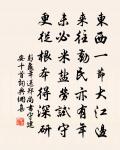 東西一節大江邊
來往勤民亦有年
未必米鹽勞試守
更從根本得深研
彭龜年送尚書守建
安十首詞典網集